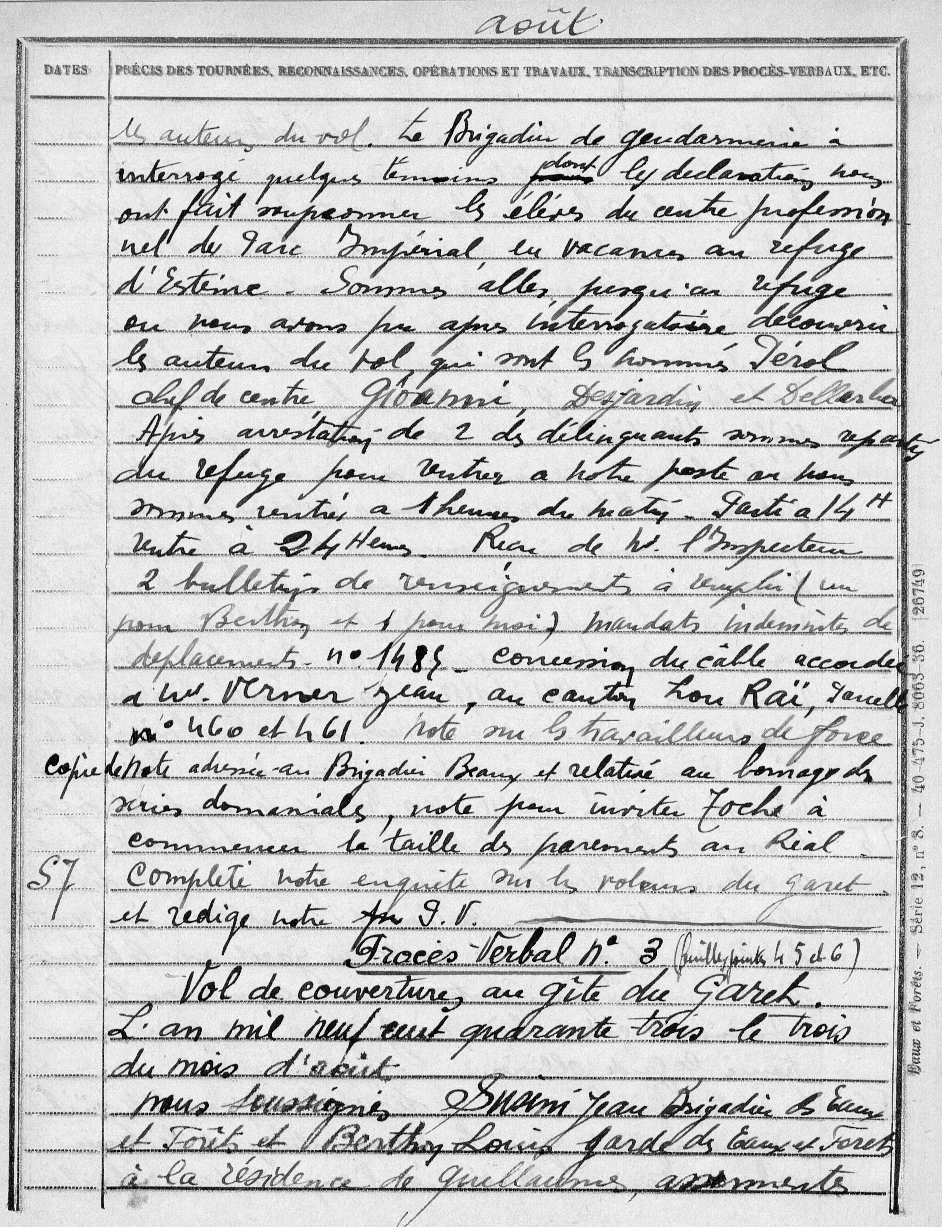 août
DATES
PRÉCIS DES TOURNÉES, RECONNAISSANCES, OPÉRATIONS ET TRAVAUX, TRANSCRIPTION DES PROCÈS-VERBAUX, ETC.
les auteurs du vol. Le Brigadier de gendarmerie à
interrogé quelques temoins dont les declarations nous
ont fait soupconner les élèves du centre profession
nel du Parc Impérial, en vacances au refuge
d'Estenc. Sommes allés jusqu'au refuge
ou nous avons pu apres interrogatoire decouvrir
les auteurs du vol, qui sont les nommés Pérol
chef de centre Gioanni, Desjardin et Dellarba
Après arrestation de 2 des délinquants sommes repartis
du refuge pour rentrer a notre poste ou nous
sommes rentrés a 1 heures du matin. Parti a 14 H
rentré à 24 Heures. Recu de Mr. l'Inspecteur
2 bulletins de renseignements à remplir (un
pour Berthoy et 1 pour moi) Mandats indemnites de
deplacements. n° 1485. concession du câble accordée
a Mr. Verner Jean, au canton Lou Raï, Parcelle
n° 460 et 461. Note sur les travailleurs de force
copie de Note adressée au Brigadier Beaux et relative au bornage des
series domaniales, note pour inviter Toche à
commencer la taille des parements au Réal.
S7
Completé notre enquête sur les voleurs du garet
et redigé notre P.V.
Procès-Verbal n° 3 (feuilles jointes 4 5 et 6)
Vol de couvertures au gîte du Garet.
L'an mil neuf cent quarante trois le trois
du mois d'août
nous soussignés Susini Jean Brigadier des Eaux
et Forêts et Berthoy Louis garde des Eaux et Forets
à la résidence de Guillaumes, assermentés
Eaux et Forêts. — Série 12, n° 8. — 40-475-J. 8063-36. [26749]